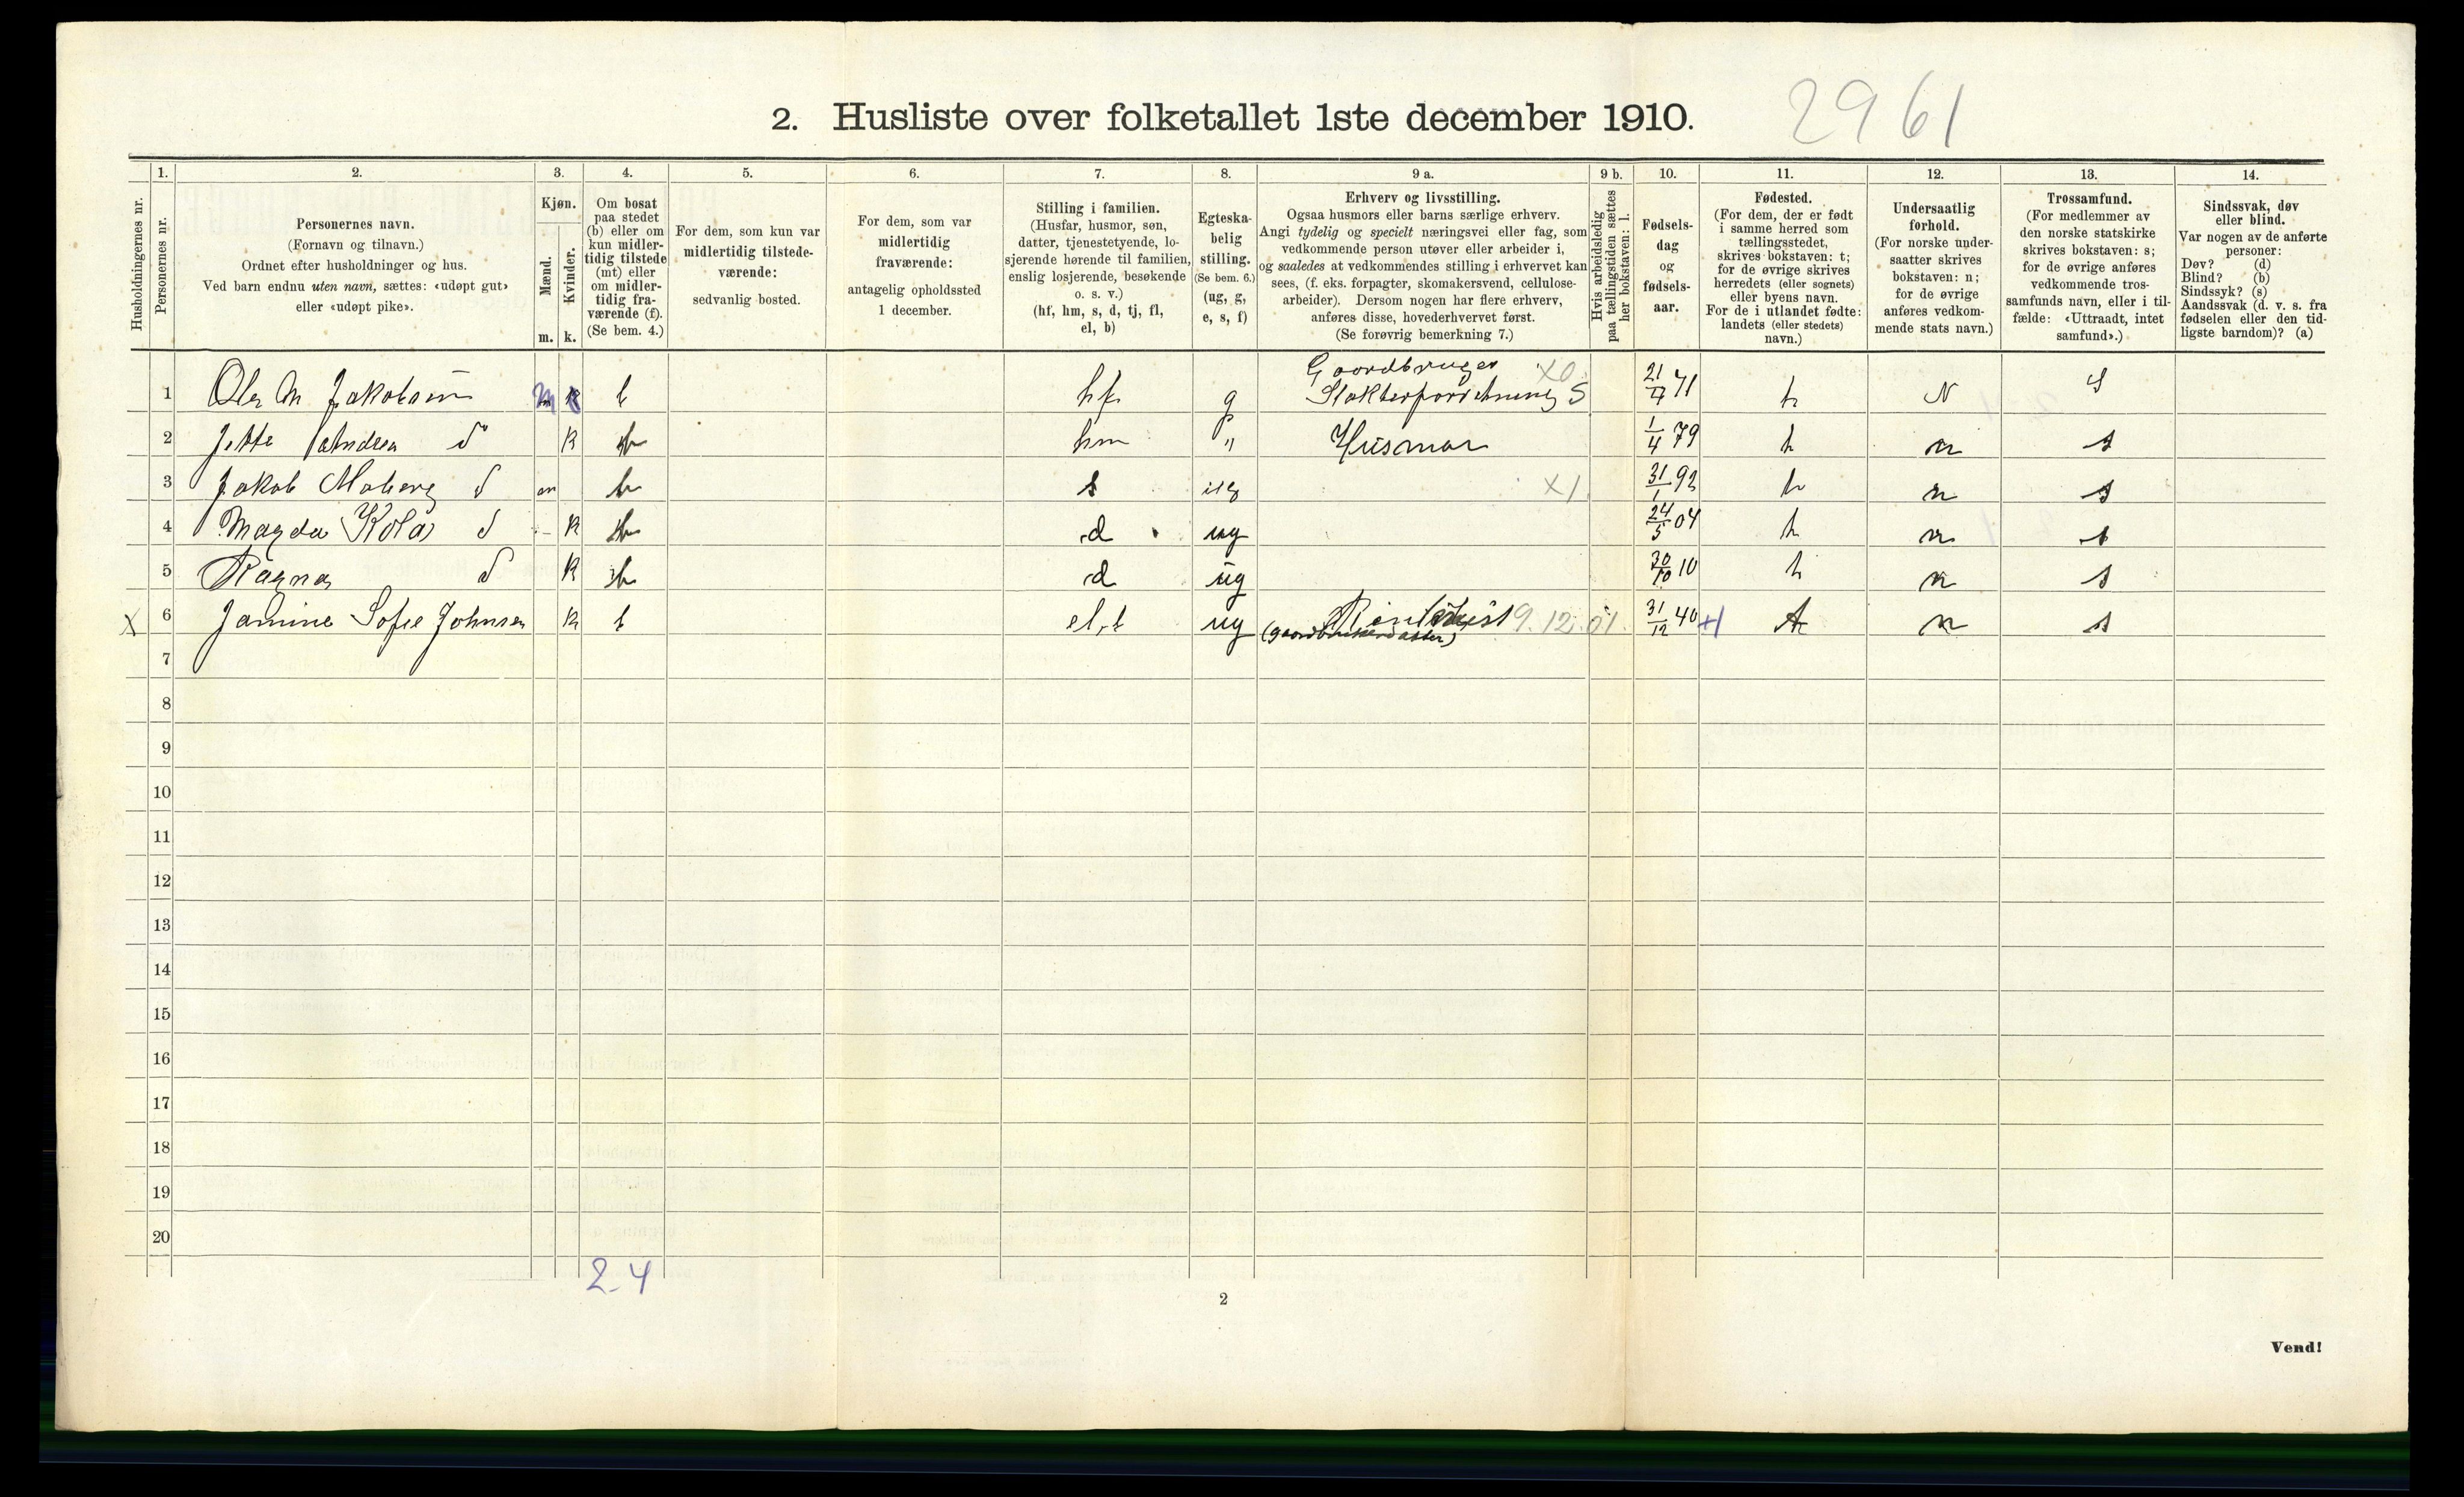 2. Husliste over folketallet 1ste december 1910. 2961
Husholdningernes nr.
1. Personernes nr.
2. Personernes navn.
(Fornavn og tilnavn.)
Ordnet efter husholdninger og hus.
Ved barn endnu uten navn, sættes: «udøpt gut»
eller «udøpt pike».
3. Kjøn.
Mænd. m.
Kvinder. k.
4. Om bosat
paa stedet
(b) eller om
kun midler-
tidig tilstede
(mt) eller
om midler-
tidig fra-
værende (f).
(Se bem. 4.)
5. For dem, som kun var
midlertidig tilstede-
værende:
sedvanlig bosted.
6. For dem, som var
midlertidig
fraværende:
antagelig opholdssted
1 december.
7. Stilling i familien.
(Husfar, husmor, søn,
datter, tjenestetyende, lo-
sjerende hørende til familien,
enslig losjerende, besøkende
o. s. v.)
(hf, hm, s, d, tj, fl,
el, b)
8. Egteska-
belig
stilling.
(Se bem. 6.)
(ug, g,
e, s, f)
9 a. Erhverv og livsstilling.
Ogsaa husmors eller barns særlige erhverv.
Angi tydelig og specielt næringsvei eller fag, som
vedkommende person utøver eller arbeider i,
og saaledes at vedkommendes stilling i erhvervet kan
sees, (f. eks. forpagter, skomakersvend, cellulose-
arbeider). Dersom nogen har flere erhverv,
anføres disse, hovederhvervet først.
(Se forøvrig bemerkning 7.)
9 b. Hvis arbeidsledig
paa tællingstiden sættes
her bokstaven: l.
10. Fødsels-
dag
og
fødsels-
aar.
11. Fødested.
(For dem, der er født
i samme herred som
tællingsstedet,
skrives bokstaven: t;
for de øvrige skrives
herredets (eller sognets)
eller byens navn.
For de i utlandet fødte:
landets (eller stedets)
navn.)
12. Undersaatlig
forhold.
(For norske under-
saatter skrives
bokstaven: n;
for de øvrige
anføres vedkom-
mende stats navn.)
13. Trossamfund.
(For medlemmer av
den norske statskirke
skrives bokstaven: s;
for de øvrige anføres
vedkommende tros-
samfunds navn, eller i til-
fælde: «Uttraadt, intet
samfund».)
14. Sindssvak, døv
eller blind.
Var nogen av de anførte
personer:
Døv? (d)
Blind? (b)
Sindssyk? (s)
Aandssvak (d. v. s. fra
fødselen eller den tid-
ligste barndom)? (a)
Gaardbruger X0
1 Ole M Jakobsen m b hf g Slakterforretning S 21/7 71 t N S
2 Jette Andrea d k b hm " Husmor 1/4 79 t n s
3 Jakob Moberg d m b s ug X1 31/1 92 t n s
4 Magda d k b d ug 24/5 04 t n s
5 Ragna d k b d ug /10 10 t n s
X 6 Jamine Sofie Johnsen k b el, b ug 9.12.01 31/12 40 +1 t n s
7
8
9
10
11
12
13
14
15
16
17
18
19
20
2-4
2
Vend!